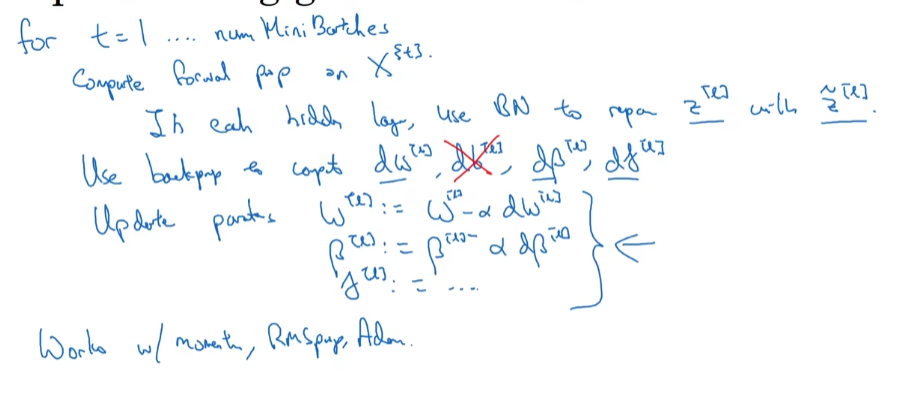 for t = 1 .... num Mini Batches
Compute forward prop on X^{t}.
In each hidden lay, use BN to repan z^[l] with z̃^[l].
Use backprop to compt dw^[l], db^[l], dβ^[l], dγ^[l]
Update partes W^[l] := W^[l] - α dW^[l]
β^[l] := β^[l] - α dβ^[l]
γ^[l] := ....
Works w/ momentm, RMSprop, Adam.